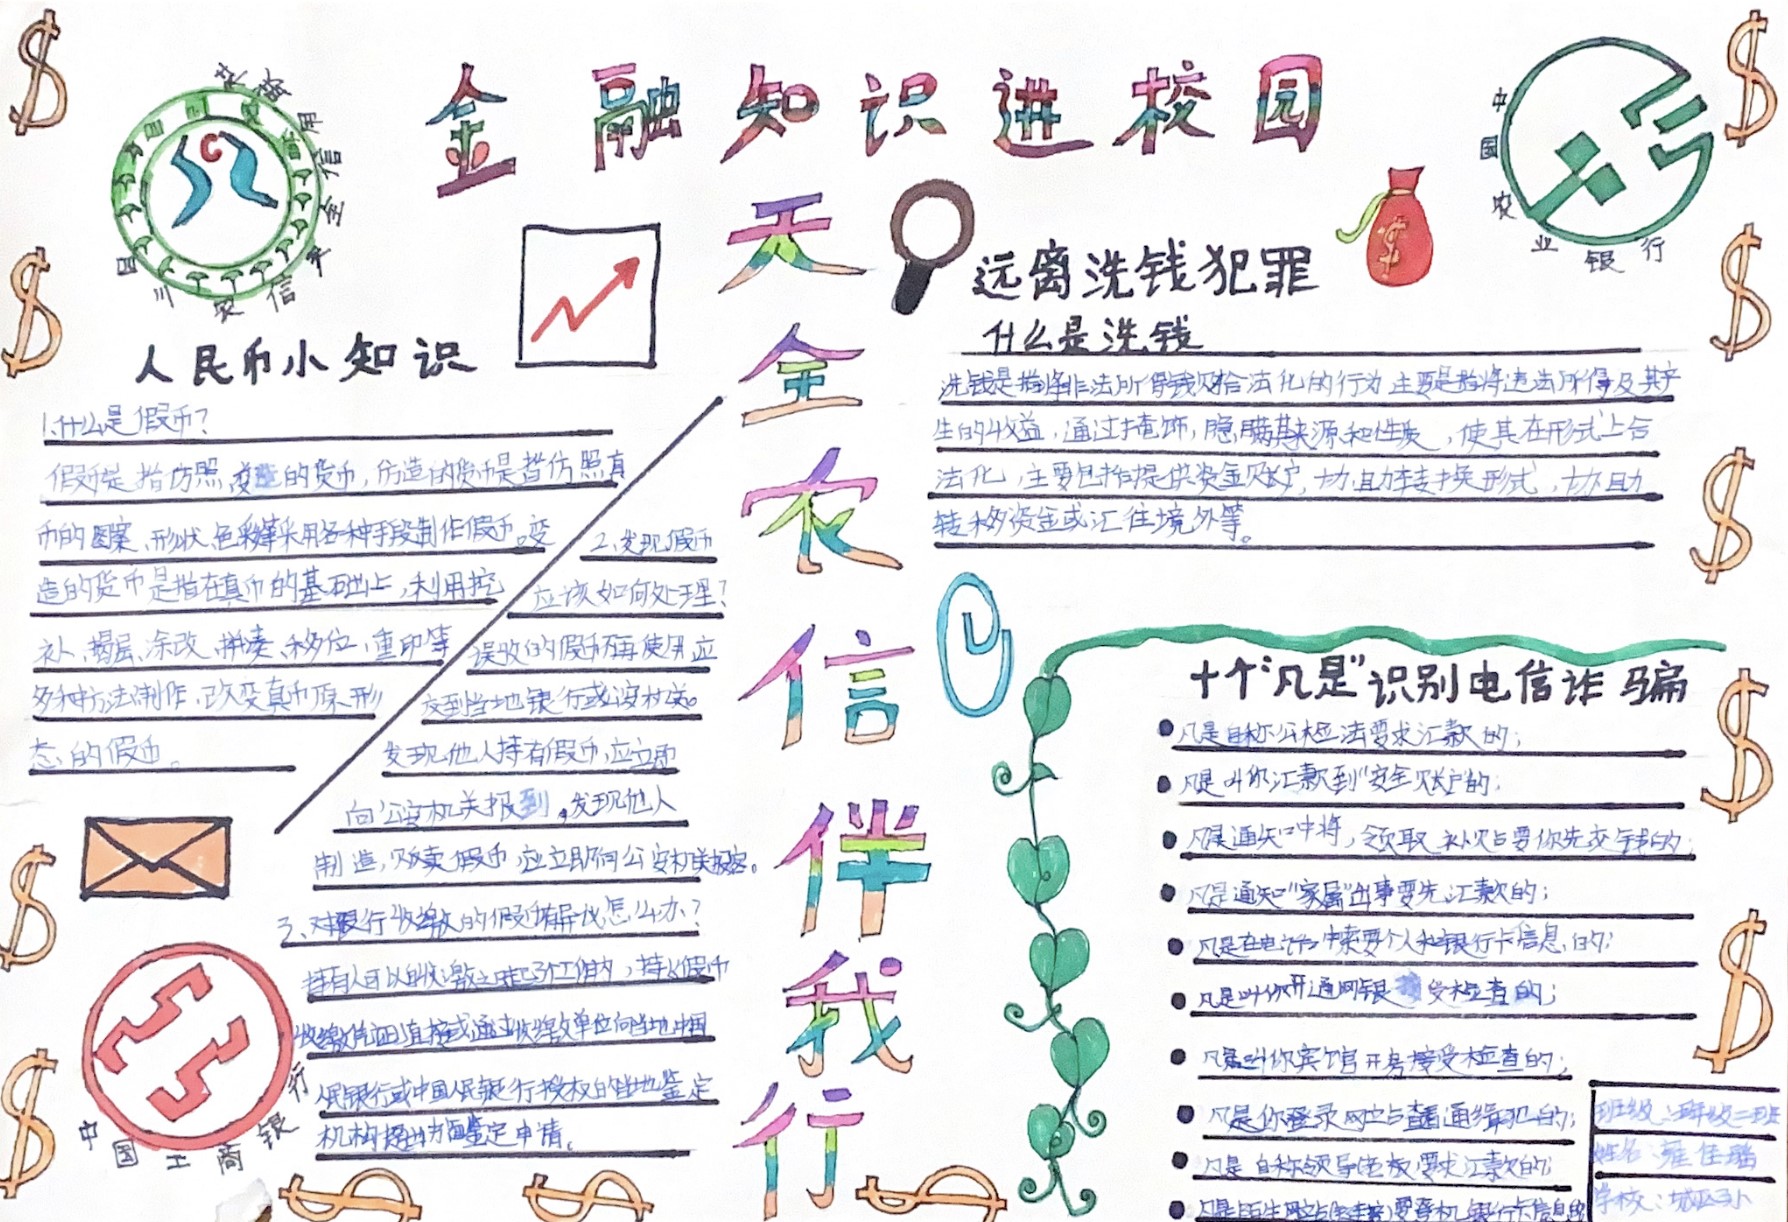 金融知识进校园
天全农信伴我行
交窗用信
全
川农信
中国农业银行
人民币小知识
1.什么是假币?
假币是指仿照、变造的货币,仿造的货币是指仿照真
币的图案、形状、色彩等采用各种手段制作假币。变
造的货币是指在真币的基础上,利用挖
补、揭层、涂改、拼凑、移位、重印等
多种方法制作,改变真币原形
态的假币。
2.发现假币
应该如何处理?
误收的假币不再使用应
交到当地银行或公安机关。
发现他人持有假币,应立即
向公安机关报到,发现他人
制造,贩卖假币应立即向公安机关报案。
3、对银行收缴的假币有异议怎么办?
持有人可以自收缴之日起3个工作日内,持假币
收缴凭证直接或通过收缴单位向当地中国
人民银行或中国人民银行授权的当地鉴定
机构提出书面鉴定申请。
中国工商银行
远离洗钱犯罪
什么是洗钱
洗钱是指将非法所得钱财合法化的行为主要是指将违法所得及其产
生的收益,通过掩饰,隐瞒其来源和性质,使其在形式上合
法化,主要包括提供资金账户,协助转换形式,协助
转移资金或汇往境外等。
十个“凡是”识别电信诈骗
凡是自称公检法要求汇款的;
凡是叫你汇款到“安全账户”的;
凡是通知中将,领取补贴要你先交钱的;
凡是通知“家属”出事要先汇款的;
凡是在电话中索要个人和银行卡信息的;
凡是叫你开通网银受检查的;
凡是叫你宾馆开房接受检查的;
凡是你登录网站查看通缉犯的;
凡是自称领导老板要求汇款的;
凡是陌生网站链接要登机银行卡信息的
班级:班级二班
姓名:雍佳
学校:城区小